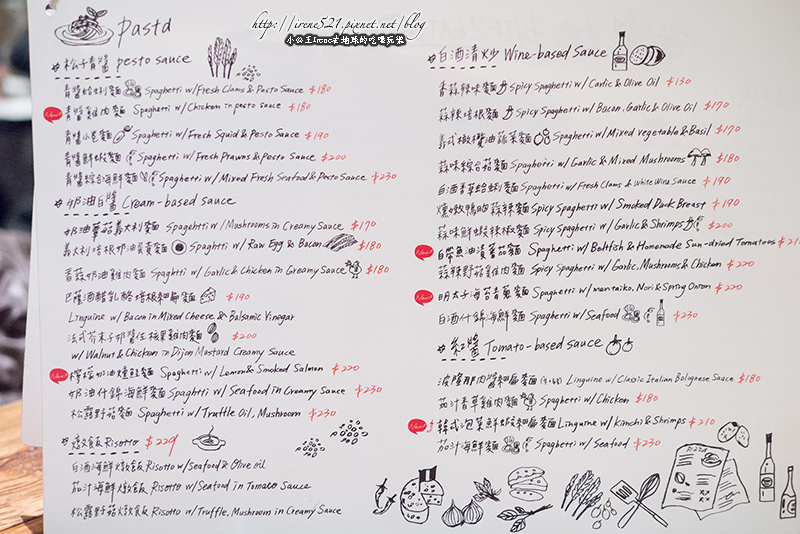 http://irene521.pixnet.net/blog
小公主Irene去地球的吃喝玩樂
pasta
# 松子青醬 pesto sauce
青醬蛤蜊麵 Spaghetti w/Fresh Clams & Pesto Sauce $180
New! 青醬雞肉麵 Spaghetti w/Chicken in pesto sauce $180
青醬小卷麵 Spaghetti w/Fresh Squid & Pesto Sauce $190
青醬鮮蝦麵 Spaghetti w/Fresh Prawns & Pesto Sauce $200
青醬綜合海鮮麵 Spaghetti w/Mixed Fresh Seafood & Pesto Sauce $230
# 奶油白醬 Cream-based sauce
奶油蘑菇義大利麵 Spaghetti w/Mushrooms in Creamy Sauce $170
義大利培根奶油蛋黃麵 Spaghtti w/Raw Egg & Bacon $180
香蒜奶油雞肉麵 Spaghtti w/Garlic & Chicken in Creamy Sauce $180
巴薩酒醋乳酪培根細扁麵 $190
Linguine w/Bacon in Mixed Cheese & Balsamic Vinegar
法式芥末籽奶醬佐核果雞肉麵 $200
w/Walnut & Chicken in Dijon Mustard Creamy Sauce
New! 檸檬奶油燻鮭麵 Spaghetti w/Lemon & Smoked Salmon $220
奶油什錦海鮮麵 Spaghtti w/Seafood in Creamy Sauce $230
松露野菇麵 Spaghetti w/Truffle Oil, Mushroom $230
# 燉飯 Risotto $229
白酒海鮮燉飯 Risotto w/Seafood & Olive oil
茄汁海鮮燉飯 Risotto w/Seafood in Tomato Sauce
松露野菇燉飯 Risotto w/Truffle, Mushroom in Creamy Sauce
# 白酒清炒 Wine-based Sauce
香蒜辣味麵 Spicy Spaghetti w/Garlic & Olive Oil $130
蒜辣培根麵 Spicy Spaghetti w/Bacon, Garlic & Olive Oil $170
義式橄欖油蔬菜麵 Spaghetti w/Mixed vegetable & Basil $170
蒜味綜合菇麵 Spaghetti w/Garlic & Mixed Mushrooms $180
白酒香草蛤蜊麵 Spaghetti w/Fresh Clams & White Wine Sauce $190
燻嫩鴨胸蒜辣麵 Spicy Spaghetti w/Smoked Duck Breast $190
蒜味鮮蝦辣椒麵 Spicy Spaghetti w/Garlic & Shrimps $200
New! 白帶魚油漬蕃茄麵 Spaghetti w/Beltfish & Homemade Sun-dried Tomatoes $210
蒜辣野菇雞肉麵 Spicy Spaghetti w/Garlic, Mushrooms & Chicken $220
New! 明太子海苔青蔥麵 Spaghetti w/mentaiko, Nori & Spring Onion $220
白酒什錦海鮮麵 Spaghetti w/Seafood $230
# 紅醬 Tomato-based sauce
波隆那肉醬細扁麵 Linguine w/Classic Italian Bolognese Sauce $180
茄汁香草雞肉麵 Spaghetti w/Chicken $180
New! 韓式泡菜鮮蝦細扁麵 Linguine w/Kimchi & Shrimps $210
茄汁海鮮麵 Spaghetti w/Seafood $230
Pizza